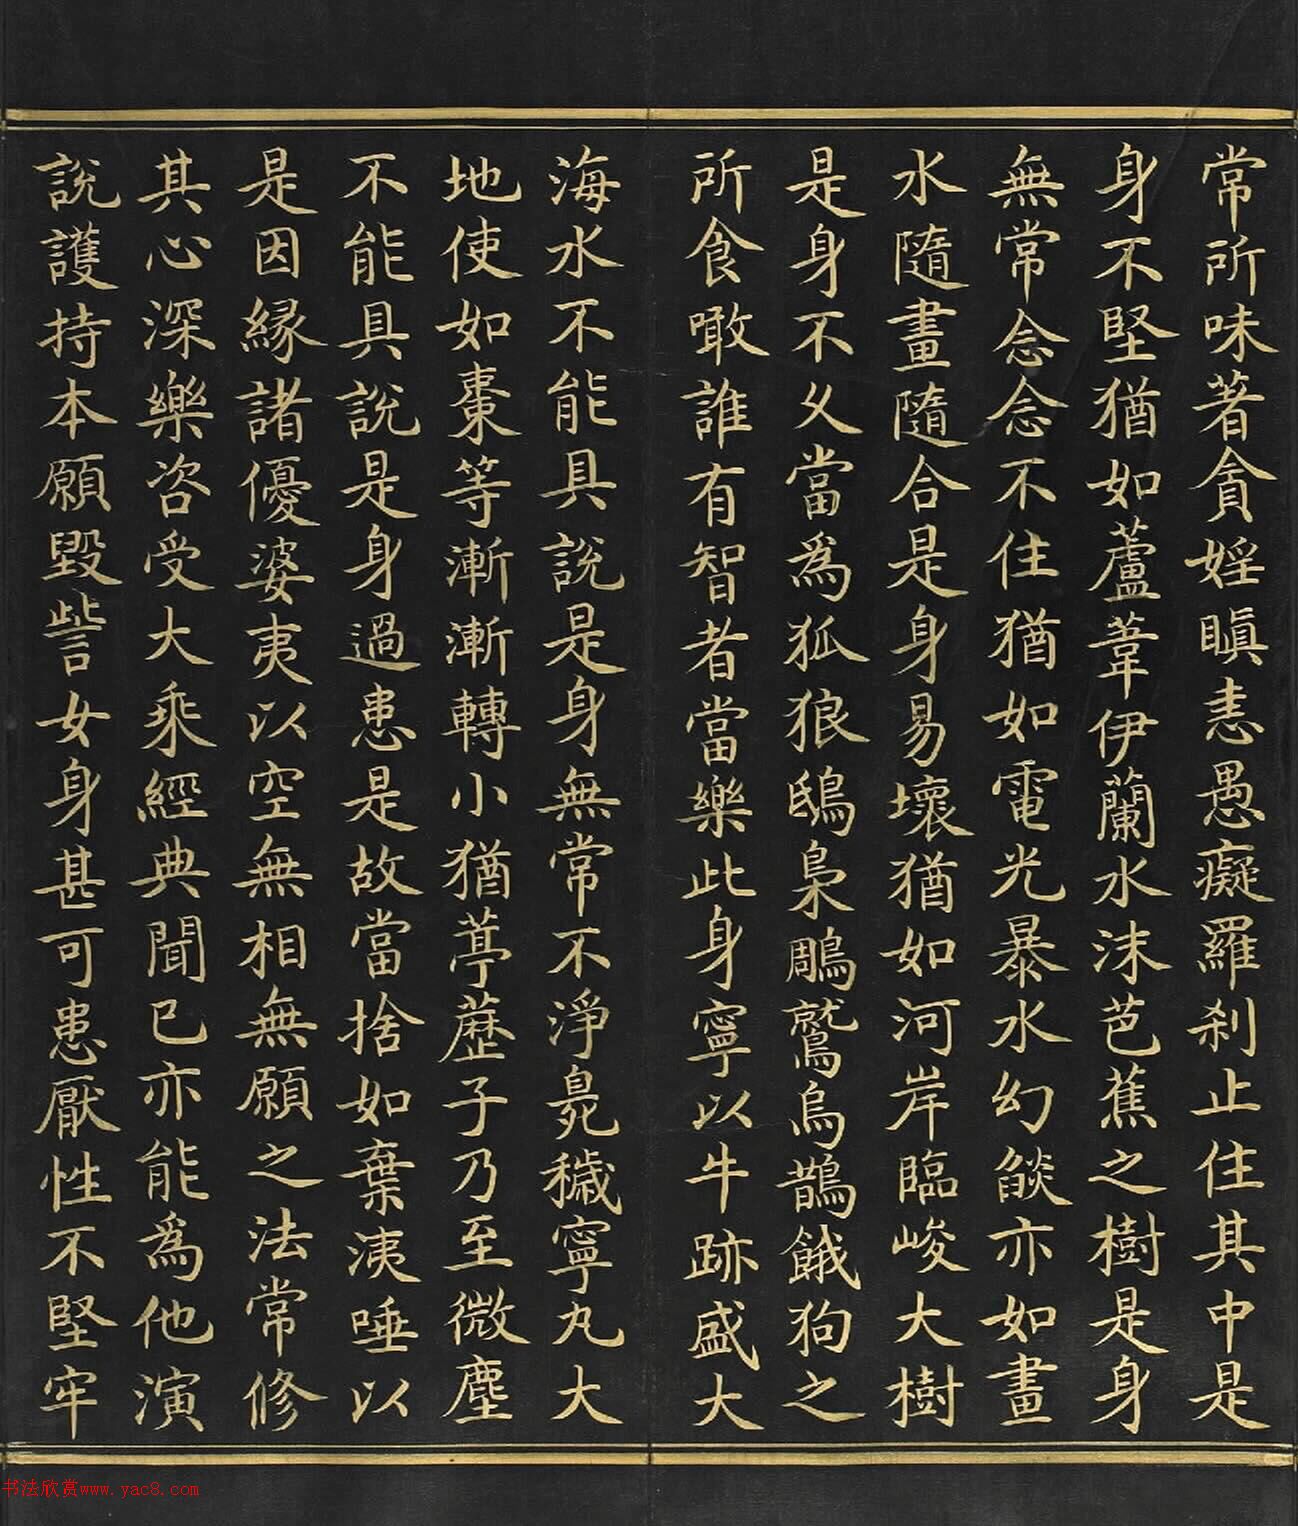 常所味著貪婬瞋恚愚癡羅刹止住其中是
身不堅猶如蘆葦伊蘭水沫芭蕉之樹是身
無常念念不住猶如電光暴水幻燄亦如畫
水隨畫隨合是身易壞猶如河岸臨峻大樹
是身不久當為狐狼鴟梟鵰鷲烏鵲餓狗之
所食噉誰有智者當樂此身寧以牛跡盛大
海水不能具說是身無常不淨臰穢寧丸大
地使如棗等漸漸轉小猶葶藶子乃至微塵
不能具說是身過患是故當捨如棄洟唾以
是因緣諸優婆夷以空無相無願之法常修
其心深樂咨受大乘經典聞已亦能為他演
說護持本願毀訾女身甚可患厭性不堅牢
书法欣赏www.yac8.com